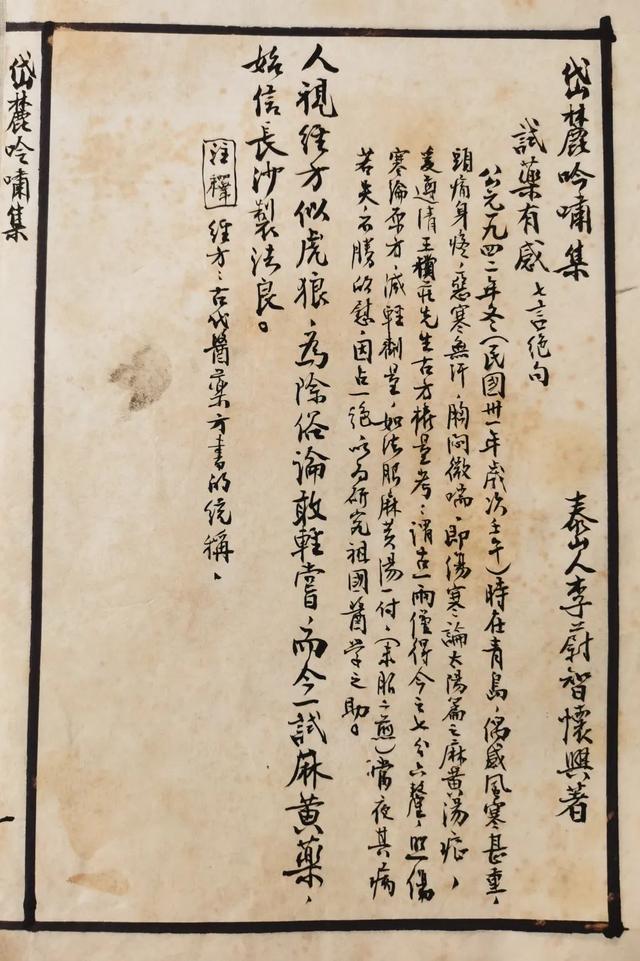 岱麓吟嘯集
泰山人李蔚智懷興著
試藥有感 七言绝句
公元一九四二年冬（民國卅一年歲次壬午）時在青島，偶感風寒甚重，
頭痛身疼，惡寒無汗，胸闷微喘，即傷寒論太陽篇之麻黄湯症，
遵清王樸莊先生古方權量考：謂古一兩僅得今之七分六釐，照傷
寒論原方，減輕劑量，如法服麻黄湯一付，（未服二煎）當夜其病
若失，不勝的慰，因占一绝以為研究祖國醫学之助。
人視经方似虎狼，為除俗論敢輕嘗，而今一試麻黄藥，
始信長沙製法良。
注釋 经方：古代醫藥方書的统稱，
岱麓吟嘯集